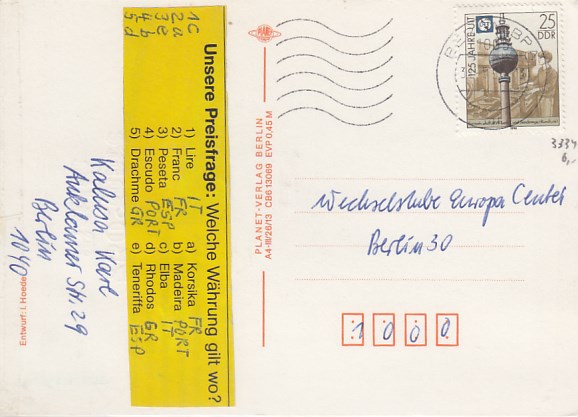 1C
2a
3e
4b
5d
Unsere Preisfrage: Welche Währung gilt wo?
1) Lire IT a) Korsika FR
2) Franc FR b) Madeira PORT
3) Peseta ESP c) Elba IT
4) Escudo PORT d) Rhodos GR
5) Drachme GR e) Teneriffa ESP
Kalusa Karl
Anklamer Str. 29
Berlin
1040
Entwurf: I. Hoede
PLANET
PLANET-VERLAG BERLIN
A4-III/26/13 CB6 13069 EVP 0,45 M
125 JAHRE UIT
25
DDR
3334
6,-
Wechselstube Europa Center
Berlin 30
1000